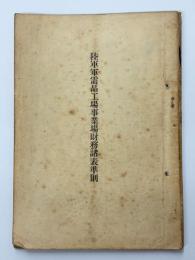 陸軍軍需品工場事業場財務諸表準則